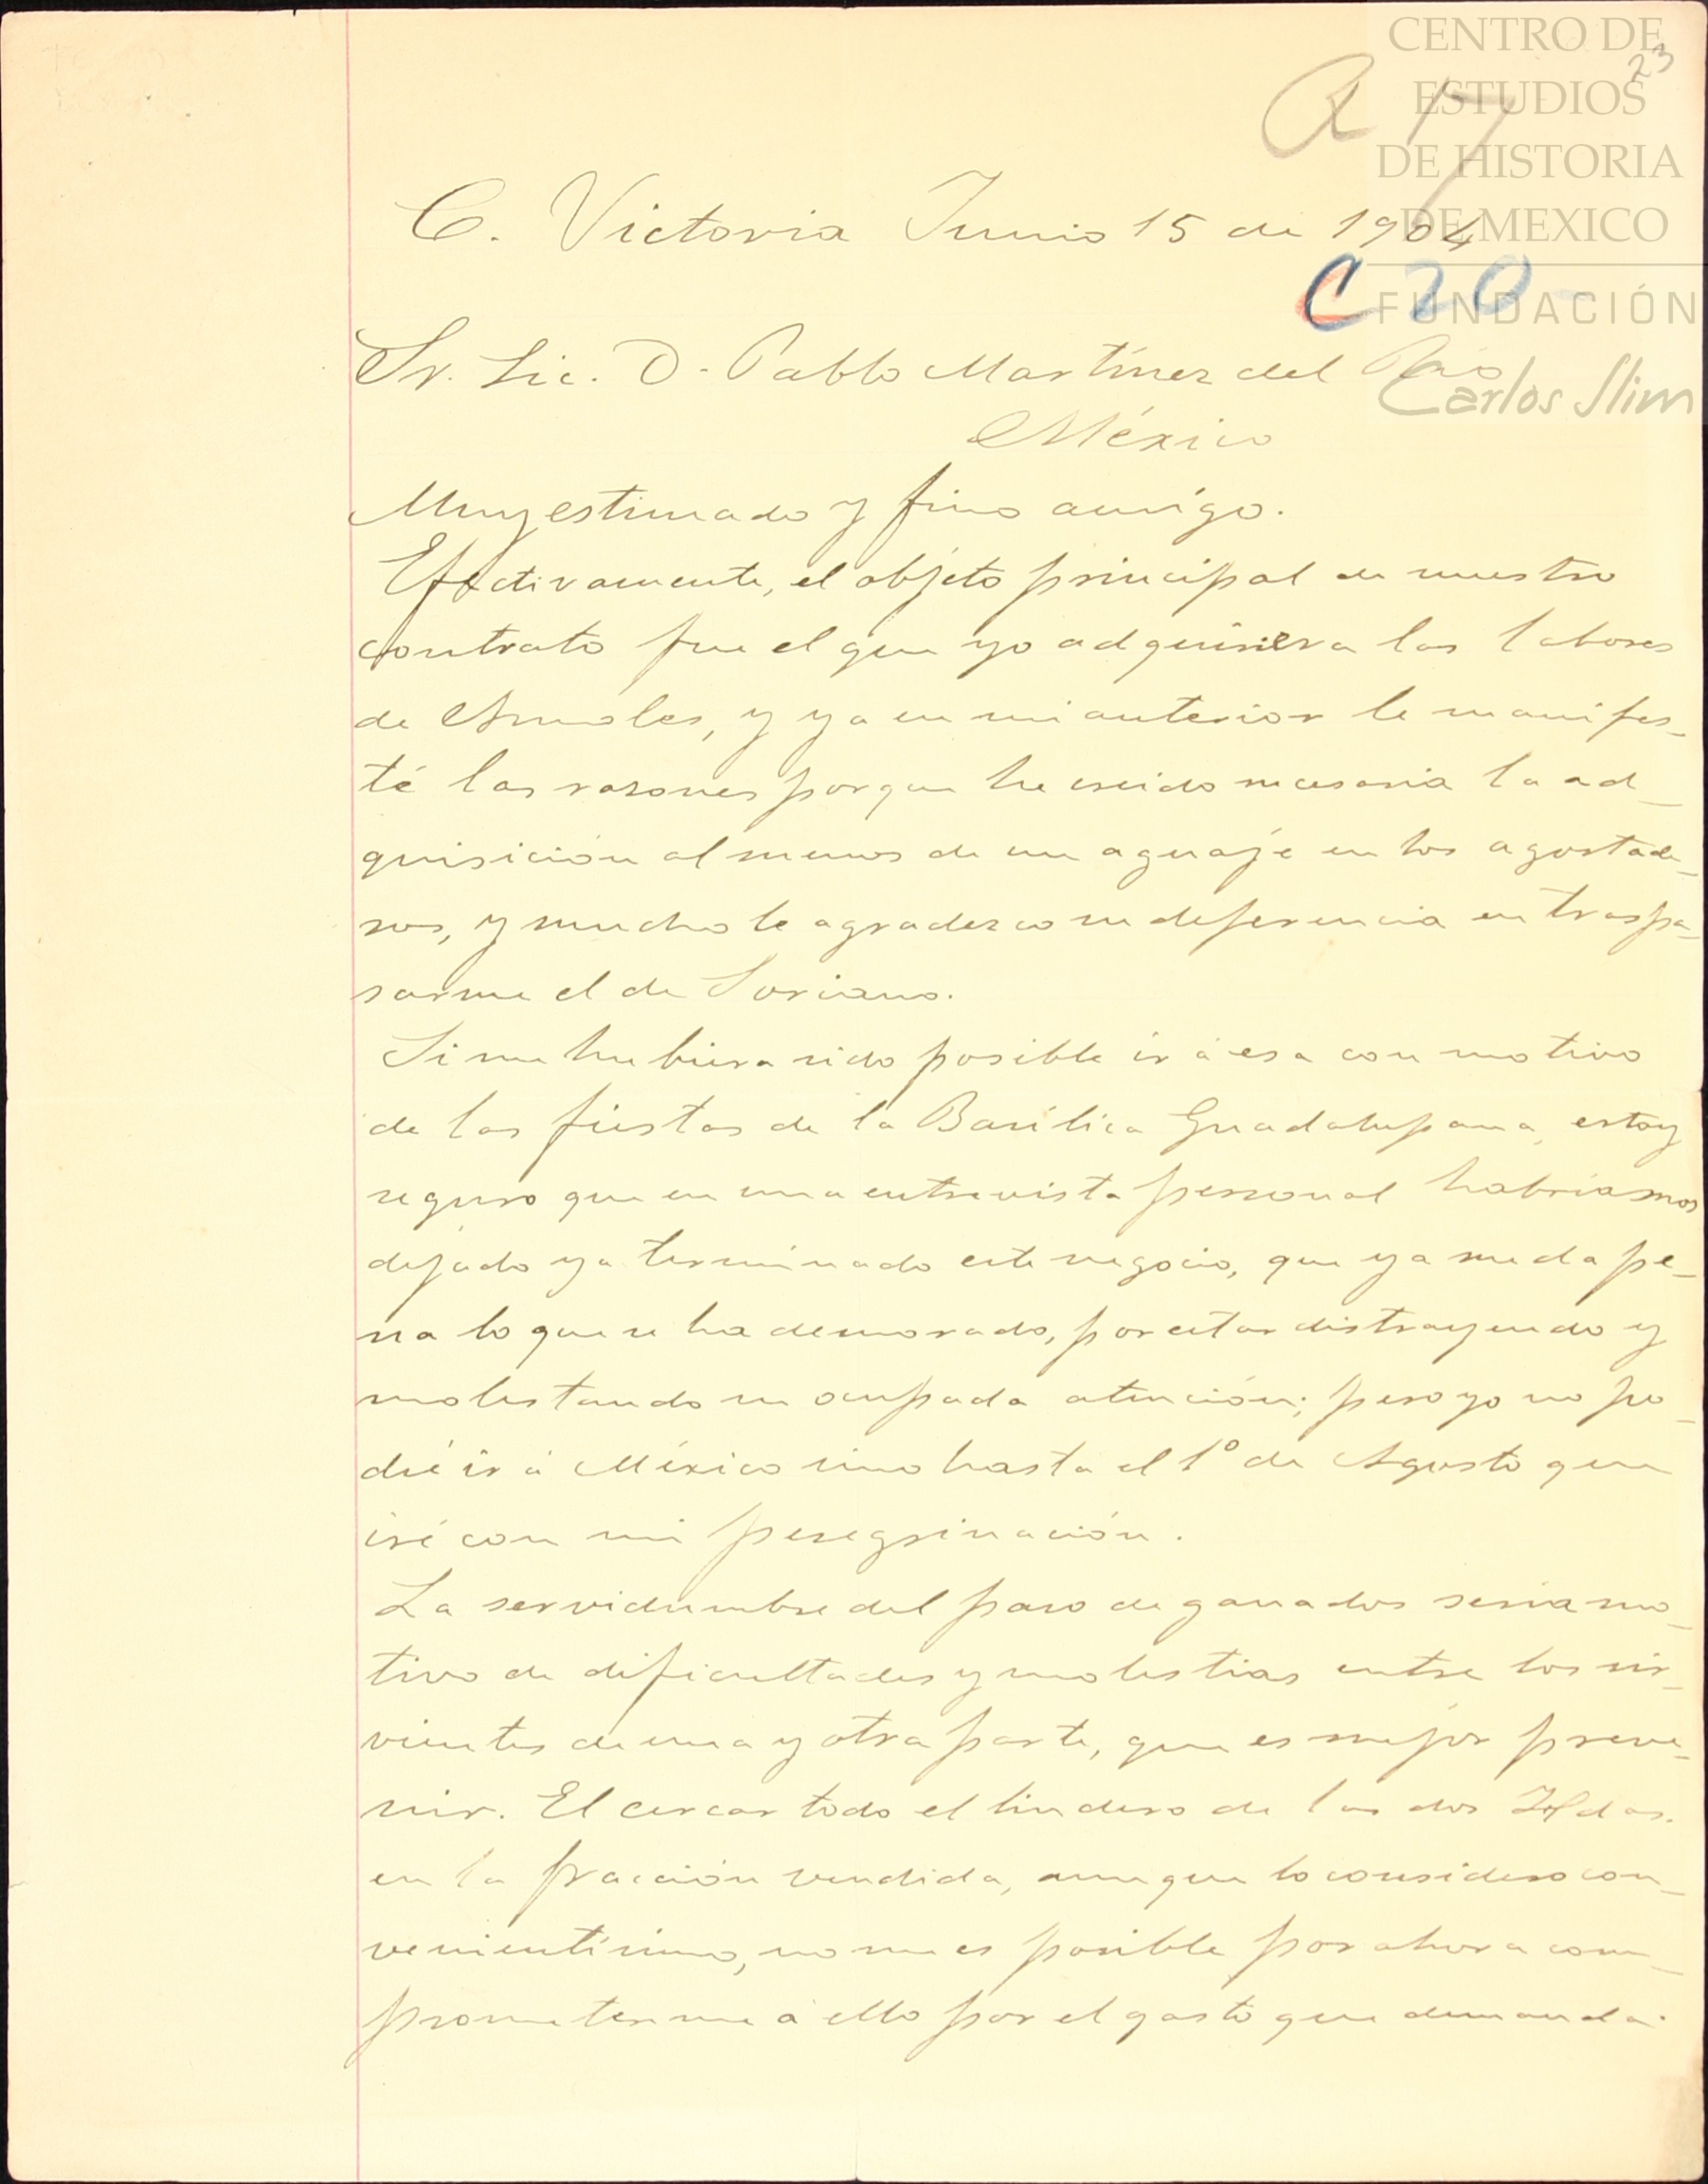 CENTRO DE
ESTUDIOS
DE HISTORIA
DE MEXICO
FUNDACIÓN
Carlos Slim
23
A 17
C. Victoria Junio 15 de 1904
C 20-
Sr. Lic. D. Pablo Martínez del Río
México
Muy estimado y fino amigo.
Efectivamente, el objeto principal de nuestro
contrato fue el que yo adquiriera las labores
de Amoles, y ya en mi anterior le manifes_
té las razones porque he creido necesaria la ad_
quisición al menos de un aguaje en los agostade_
ros, y mucho le agradezco su deferencia en traspa_
sarme el de Soriano.
Si me hubiera sido posible ir á esa con motivo
de las fiestas de la Basílica Guadalupana, estoy
seguro que en una entrevista personal habríamos
dejado ya terminado este negocio, que ya me da pe_
na lo que se ha demorado, por estar distrayendo y
molestando su ocupada atención; pero yo no po_
dré ir á México sino hasta el 1º de Agosto que
iré con mi peregrinación.
La servidumbre del paso de ganados seria mo_
tivo de dificultades y molestias entre los sir_
vientes de una y otra parte, que es mejor preve_
nir. El cercar todo el lindero de las dos Hdas.
en la fracción vendida, aunque lo considero con_
venientísimo, no me es posible por ahora com_
prometerme á ello por el gasto que demanda.